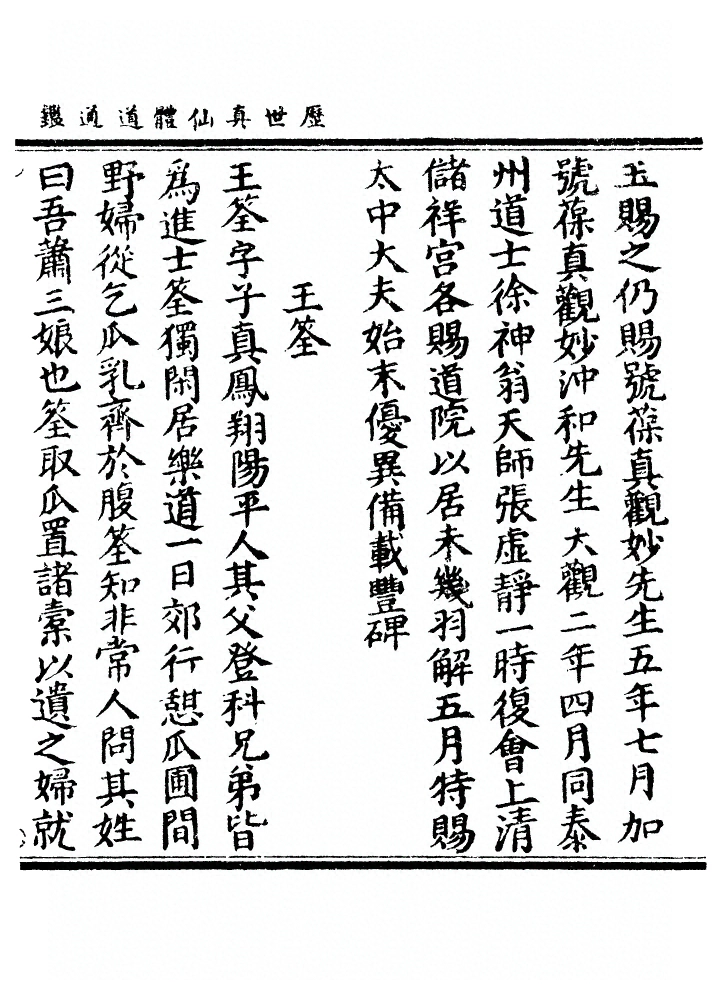 歷世真仙體道通鑑
玉賜之仍賜號葆真觀妙先生五年七月加
號葆真觀妙沖和先生大觀二年四月同泰
州道士徐神翁天師張虛靜一時復會上清
儲祥宮各賜道院以居未幾羽解五月特賜
太中大夫始末優異備載豐碑
王筌
王筌字子真鳳翔陽平人其父登科兄弟皆
爲進士筌獨閑居樂道一日郊行憇瓜圃間
野婦從乞瓜乳齊於腹筌知非常人問其姓
曰吾蕭三娘也筌取瓜置諸橐以遺之婦就